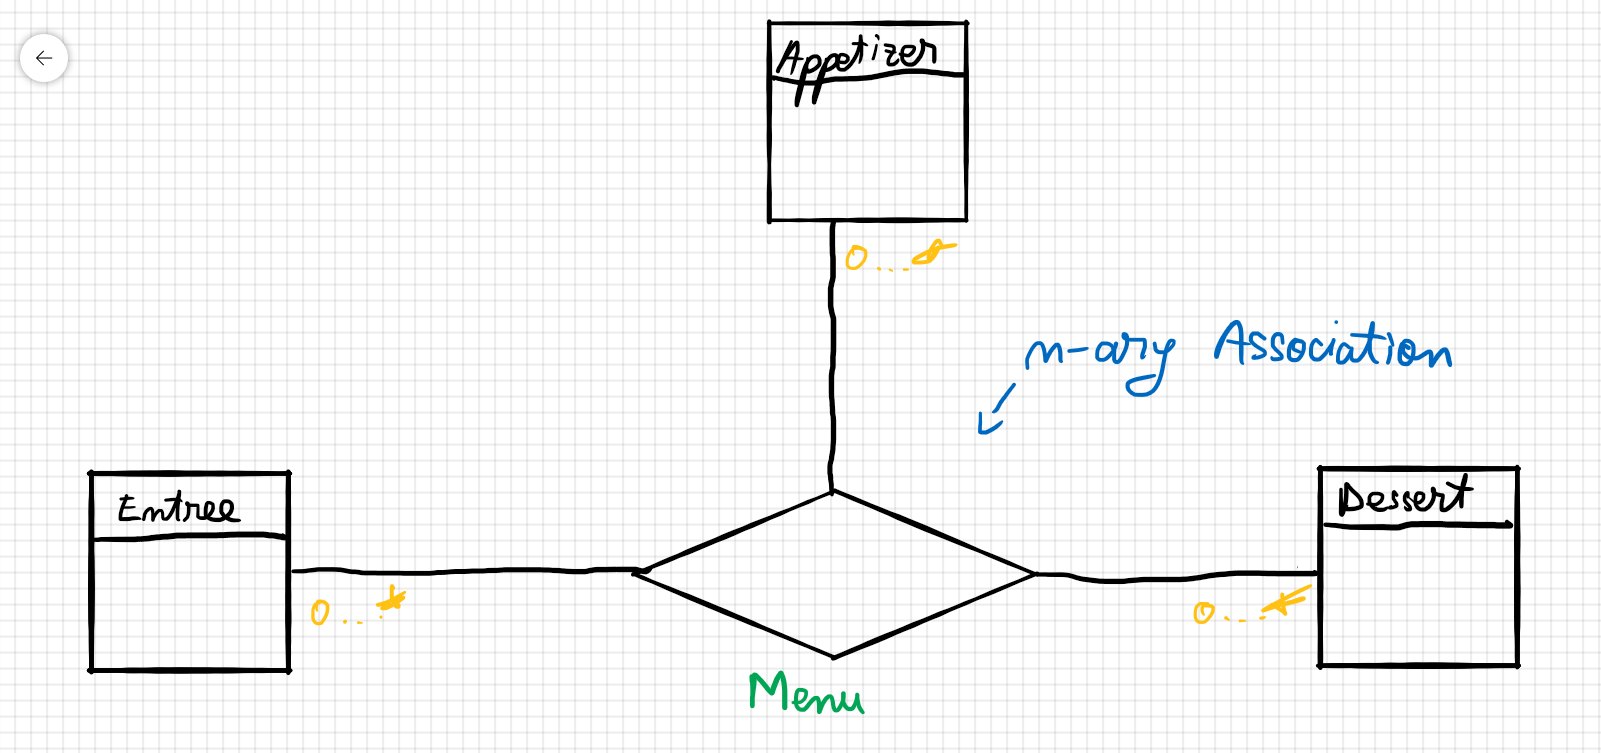 Appetizer
0...*
n-ary Association
Entree
Dessert
0...*
0...*
Menu